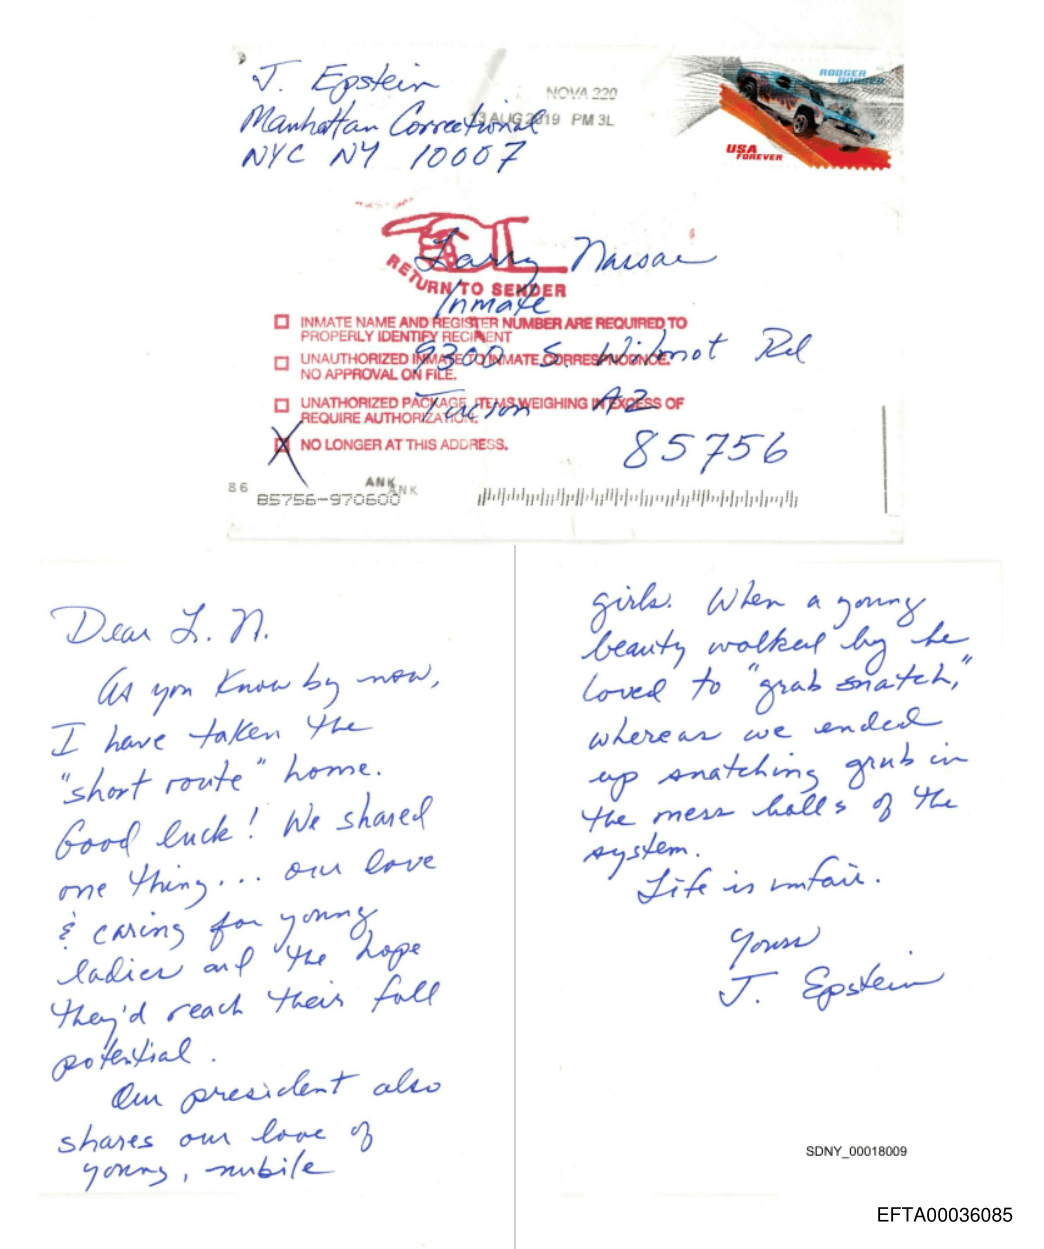 J. Epstein
Manhattan Correctional
NYC NY 10007
NOVA 220
13 AUG 2019 PM 3L
RODGER
DODGER
USA
FOREVER
Larry Nassar
RETURN TO SENDER
Inmate
INMATE NAME AND REGISTER NUMBER ARE REQUIRED TO
PROPERLY IDENTIFY RECIPIENT
9300 S. Wilmot Rd
UNAUTHORIZED INMATE TO INMATE CORRESPONDNCE.
NO APPROVAL ON FILE.
Tucson AZ
UNATHORIZED PACKAGE, ITEMS WEIGHING IN EXCESS OF
REQUIRE AUTHORIZATION.
X NO LONGER AT THIS ADDRESS.
85756
86
ANK
ANK
85756-970600
Dear L. N.
As you know by now,
I have taken the
"short route" home.
Good luck! We shared
one thing... our love
& caring for young
ladies and the hope
they'd reach their full
potential.
Our president also
shares our love of
young, nubile
girls. When a young
beauty walked by he
loved to "grab snatch,"
whereas we ended
up snatching grub in
the mess halls of the
system.
Life is unfair.
Yours
J. Epstein
SDNY_00018009
EFTA00036085